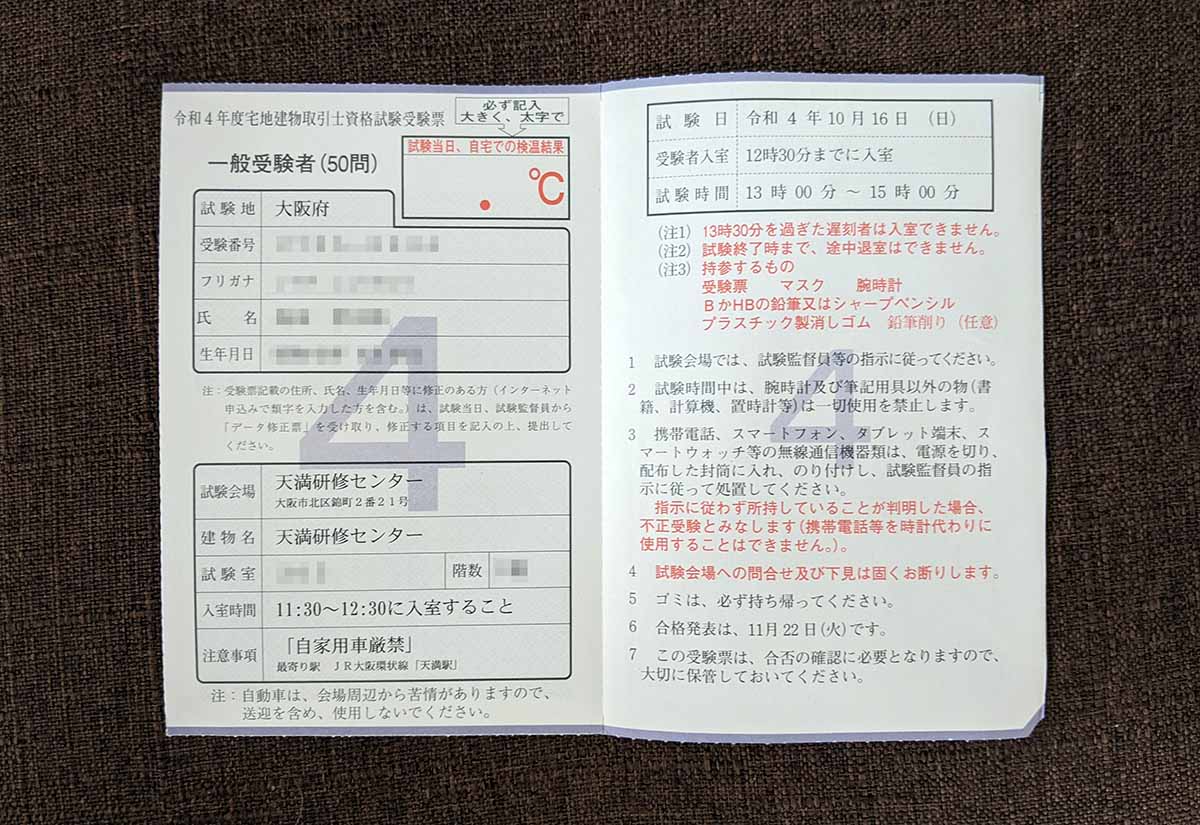 令和4年度宅地建物取引士資格試験受験票
必ず記入
大きく、太字で
一般受験者(50問)
試験当日、自宅での検温結果
. ℃
試験地 大阪府
受験番号
フリガナ
氏 名
生年月日
注：受験票記載の住所、氏名、生年月日等に修正のある方（インターネット
申込みで類字を入力した方を含む。）は、試験当日、試験監督員から
「データ修正票」を受け取り、修正する項目を記入の上、提出して
ください。
4
試験会場 天満研修センター
大阪市北区錦町2番21号
建物名 天満研修センター
試験室 階数
入室時間 11:30～12:30に入室すること
注意事項 「自家用車厳禁」
最寄り駅 JR大阪環状線「天満駅」
注：自動車は、会場周辺から苦情がありますので、
送迎を含め、使用しないでください。
試験日 令和 4 年 10 月 16 日 （日）
受験者入室 12時30分までに入室
試験時間 13 時 00 分 ～ 15 時 00 分
(注1) 13時30分を過ぎた遅刻者は入室できません。
(注2) 試験終了時まで、途中退室はできません。
(注3) 持参するもの
受験票 マスク 腕時計
BかHBの鉛筆又はシャープペンシル
プラスチック製消しゴム 鉛筆削り（任意）
4
1 試験会場では、試験監督員等の指示に従ってください。
2 試験時間中は、腕時計及び筆記用具以外の物(書
籍、計算機、置時計等)は一切使用を禁止します。
3 携帯電話、スマートフォン、タブレット端末、ス
マートウォッチ等の無線通信機器類は、電源を切り、
配布した封筒に入れ、のり付けし、試験監督員の指
示に従って処置してください。
指示に従わず所持していることが判明した場合、
不正受験とみなします(携帯電話等を時計代わりに
使用することはできません。)。
4 試験会場への問合せ及び下見は固くお断りします。
5 ゴミは、必ず持ち帰ってください。
6 合格発表は、11月22日(火)です。
7 この受験票は、合否の確認に必要となりますので、
大切に保管しておいてください。